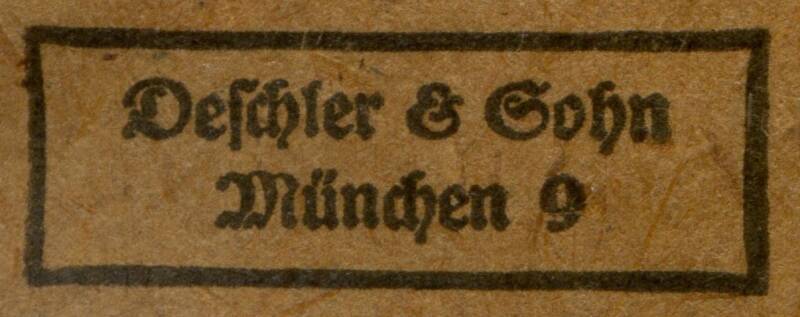 Deschler & Sohn
München 9